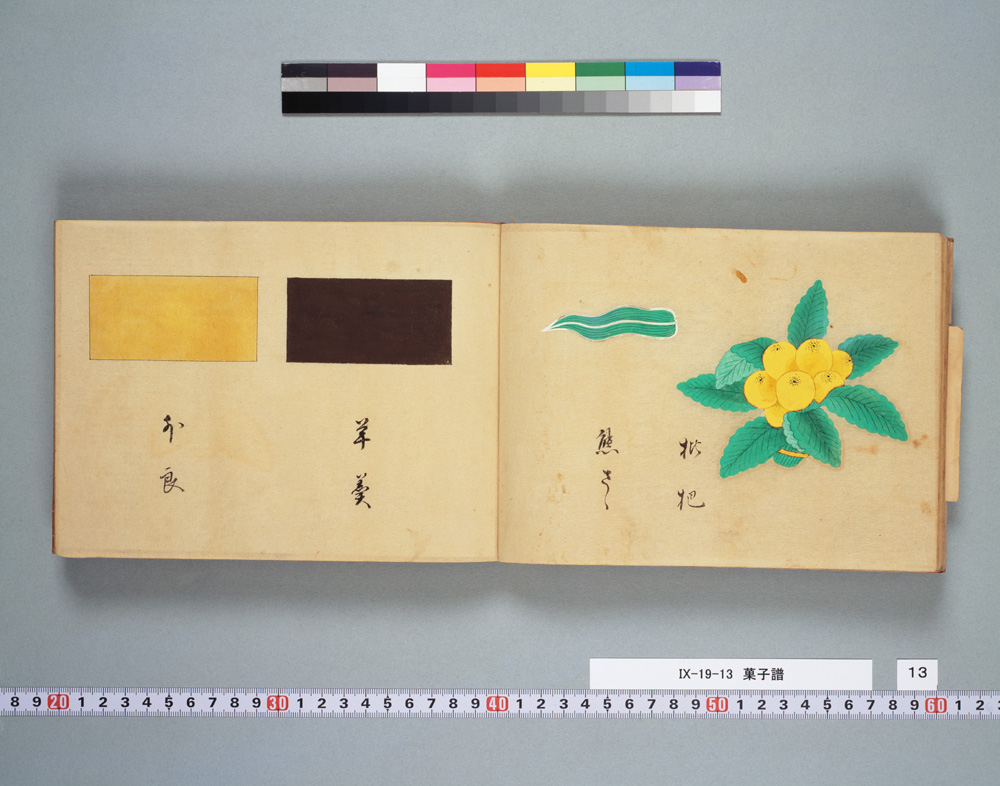 枇杷
熊さゝ
羊羹
外良
IX-19-13 菓子譜
13
8 9 20 1 2 3 4 5 6 7 8 9 30 1 2 3 4 5 6 7 8 9 40 1 2 3 4 5 6 7 8 9 50 1 2 3 4 5 6 7 8 9 60 1 2 3